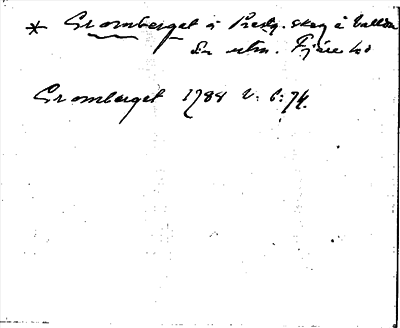 * Gromberget å Prestg. skog å Vallda
Sn utm. Fjäre hd
Gromberget 1788 V: 6: 74.